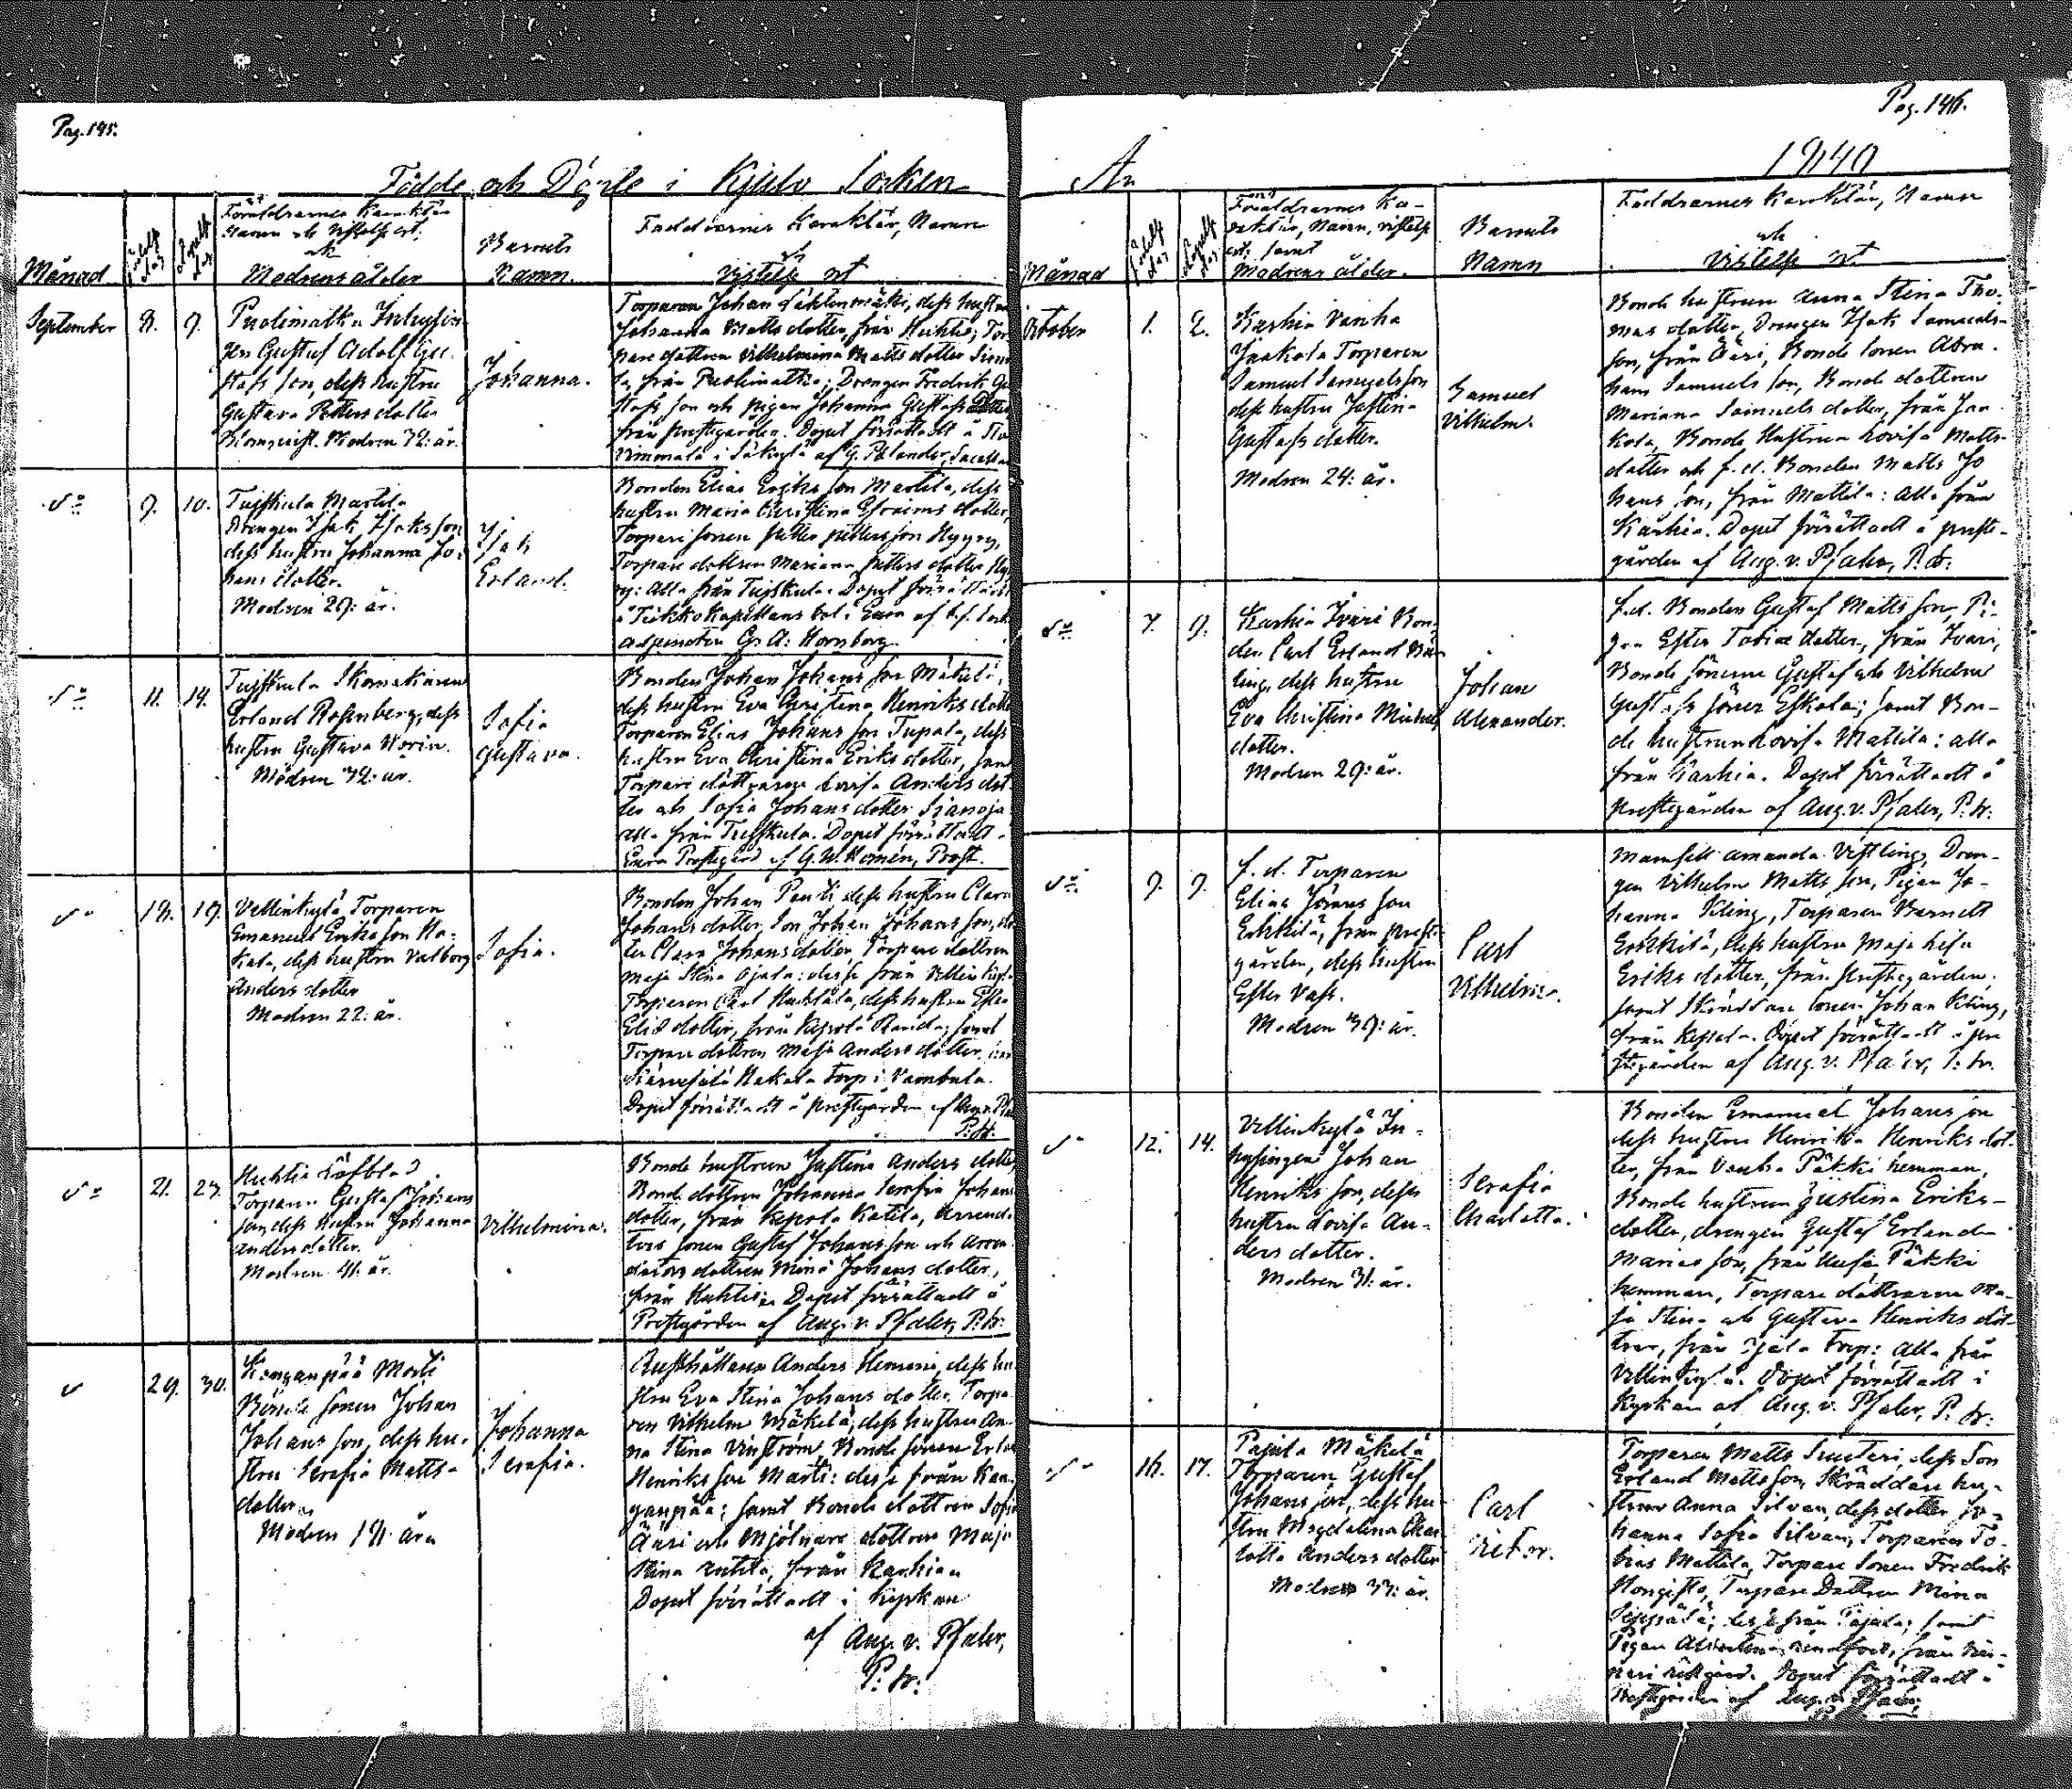 Pag. 195.
Födde och Döpte i Kjulo Socken
Månad
födelse dag
döpelse dag
Föräldrarnes karakter
Namn och Vistelse ort,
och
Modrens ålder
Barnets
Namn.
Faddrarnes Karaktär, Namn
och
Vistelse ort
September
8.
9.
Gustaf Adolf Gu-
stafs son, dess hustru
Gustava Petters dotter
Modren 32: år.
Johanna.
Torparen Johan dess hustru
Johanna Matts dotter, från Huhtis; Tor
pare dottren Vilhelmina Matts dotter
från Drengen Fredrik Gu
stafs son och pigan Johanna Gustafs Dotter
från prestegården. Dopet förrättadt å
i Säkylä af G. Polander,
9.
10.
Tuiskula Martila
Drengen Isak Isaks son
dess hustru Johanna Jo-
hans dotter.
Modren 29: år.
Isak
Erland.
Bonden Elias Eriks son Martila, dess
hustru Maria Christina Efraims dotter,
Torpare sonen Petter Petters son
Torpare dottren Mariana Petters dotter
Alla från Tuiskula. Dopet förrättadt
i Eura af
adjuncten Hornborg.
11.
14.
Tuiskula Skomakaren
Erland Rosenberg, dess
hustru Gustava Norin.
Modren 32: år.
Sofia
Gustava.
Bonden Johan Johans son Mäkilä,
dess hustru Eva Christina Henriks dotter
Torparen Elias Johans son Tupala, dess
hustru Eva Christina Eriks dotter, samt
Torpare döttrarne Lovisa Anders dot-
ter och Sofia Johans dotter
alla från Tuiskula. Dopet förrättadt å
Eura Prestgård af G. W. Homén, Prost.
18.
19.
Vellinkylä Torparen
Emanuel Eriks son Ha-
kala, dess hustru Valborg
Anders dotter
Modren 22: år.
Sofia.
Bonden Johan dess hustru Clara
Johans dotter, Son Johan Johans son, dot
ter Clara Johans dotter, Torpare dottren
Maja Stina Ojala: desse från Vellinkylä
Torparen Carl dess hustru Ester
Elis dotter, från Kepola Randa; samt
Torpare dottren Maja Anders dotter,
Hakala Torp i Vambula.
Dopet förrättadt å prestgården af Aug. v. Pfa
P: H:
21.
23.
Huhtis Löfblad
Torparen Gustaf Johans
son, dess hustru Johanna
Anders dotter.
Modren 41: år.
Vilhelmina.
Bonde hustrun Justina Anders dotter
Bonde dottren Johanna Serafia Johans
dotter, från Kepola Katila, Arrenda
tors sonen Gustaf Johans son och Arren
dators dottren Mina Johans dotter,
från Huhtis. Dopet förrättadt å
Prestgården af Aug. v. Pfaler, P. H:
29.
30.
Kanganpää Marti
Bonde sonen Johan
Johans son, dess hu-
stru Serafia Matts-
dotter
Modren 18 år
Johanna
Serafia.
Rusthållaren Anders dess hu
stru Eva Stina Johans dotter. Torpa-
ren Vilhelm Mäkelä, dess hustru An-
na Stina Vinström, Bonde sonen Erland
Henriks son Marti: desse från Kan-
ganpää; samt Bonde dottren Sofia
Ääri och Mjölnare dottren Maja
Stina från Karhia
Dopet förrättadt i kyrkan
af Aug. v. Pfaler,
P: H:
Pag. 196.
År
1840
Månad
födelse dag
döpelse dag
Föräldrarnes Ka-
raktär, Namn, vistelse
ort, samt
Modrens ålder.
Barnets
Namn
Faddrarnes Karaktär, Namn
och
Vistelse ort
October
1.
2.
Karhia Vanha
Jaakola Torparen
Samuel Samuels son
dess hustru Justina
Gustafs dotter.
Modren 24: år.
Samuel
Vilhelm.
Bonde hustrun Anna Stina Tho-
mas dotter, Drengen Isak Samuels-
son, från Ääri, Bonde sonen Abra-
ham Samuels son, Bonde dottren
Mariana Samuels dotter, från Jaa
kola, Bonde Hustrun Lovisa Matts-
dotter och f. d. Bonden Matts Jo
hans son, från Mattila: alla från
Karhia. Dopet förrättadt å preste-
gården af Aug. v. Pfaler, P. H:
7.
9.
Karhia Ivari Bon-
den Carl Erland
dess hustru
Eva Christina Michels
dotter.
Modren 29: år.
Johan
Alexander.
f. d. Bonden Gustaf Matts son, Pi-
gan Ester Tobiæ dotter, från Ivari,
Bonde sönerne Gustaf och Vilhelm
Gustafs söner Eskola; samt Bon-
de hustrun Lovisa Mattila: alla
från Karhia. Dopet förrättadt å
prestegården af Aug. v. Pfaler, P. H:
9.
9.
f. d. Torparen
Elias Johans son
Erkkilä, från prest-
gården, dess hustru
Ester
Modren 39: år.
Carl
Vilhelm.
Mamsell Amanda Vestling, Dren-
gen Vilhelm Matts son, Pigan Jo-
hanna Kling, Torparen
Erkkilä, dess hustru Maja Lisa
Eriks dotter, från prestegården,
samt Skräddare sonen Johan Kling,
från Kepola. Dopet förrättadt å pre
stgården af Aug. v. Pfaler, P: H:
12.
14.
Vellinkylä In-
hysingen Johan
Henriks son, dess
hustru Lovisa An-
ders dotter.
Modren 31: år.
Serafia
Charlotta.
Bonden Emanuel Johans son
dess hustru Henrika Henriks dot-
ter, från Vanha Päkki hemman,
Bonde hustrun Justina Eriks-
dotter, drengen Gustaf Erland
son, från Uusi Päkki
hemman, Torpare döttrarne Ma-
ja Stina och Gustava Henriks döt-
trar, från Ojala Torp: alla från
Vellinkylä. Dopet förrättadt i
Kyrkan af Aug. v. Pfaler, P: H:
16.
17.
Pajula Mäkelä
Torparen Gustaf
Johans son, dess hu-
stru Magdalena Char
lotta Anders dotter
Modren 33: år.
Carl
Victor.
Torparen Matts dess Son
Erland Matts son, Skräddare hu-
strun Anna Silvan, dess dotter Jo-
hanna Sofia Silvan, Torparen To-
bias Mattila, Torpare Sonen Fredrik
Hongisto, Torpare Dottren Mina
desse från Pajula; samt
Pigan från
Dopet förrättadt å
Prestgården af Aug. v. Pfaler